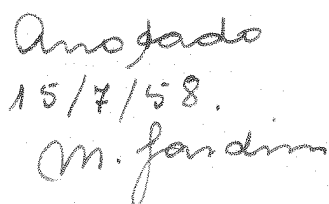 Anotado
15/7/58.
M. Jardim